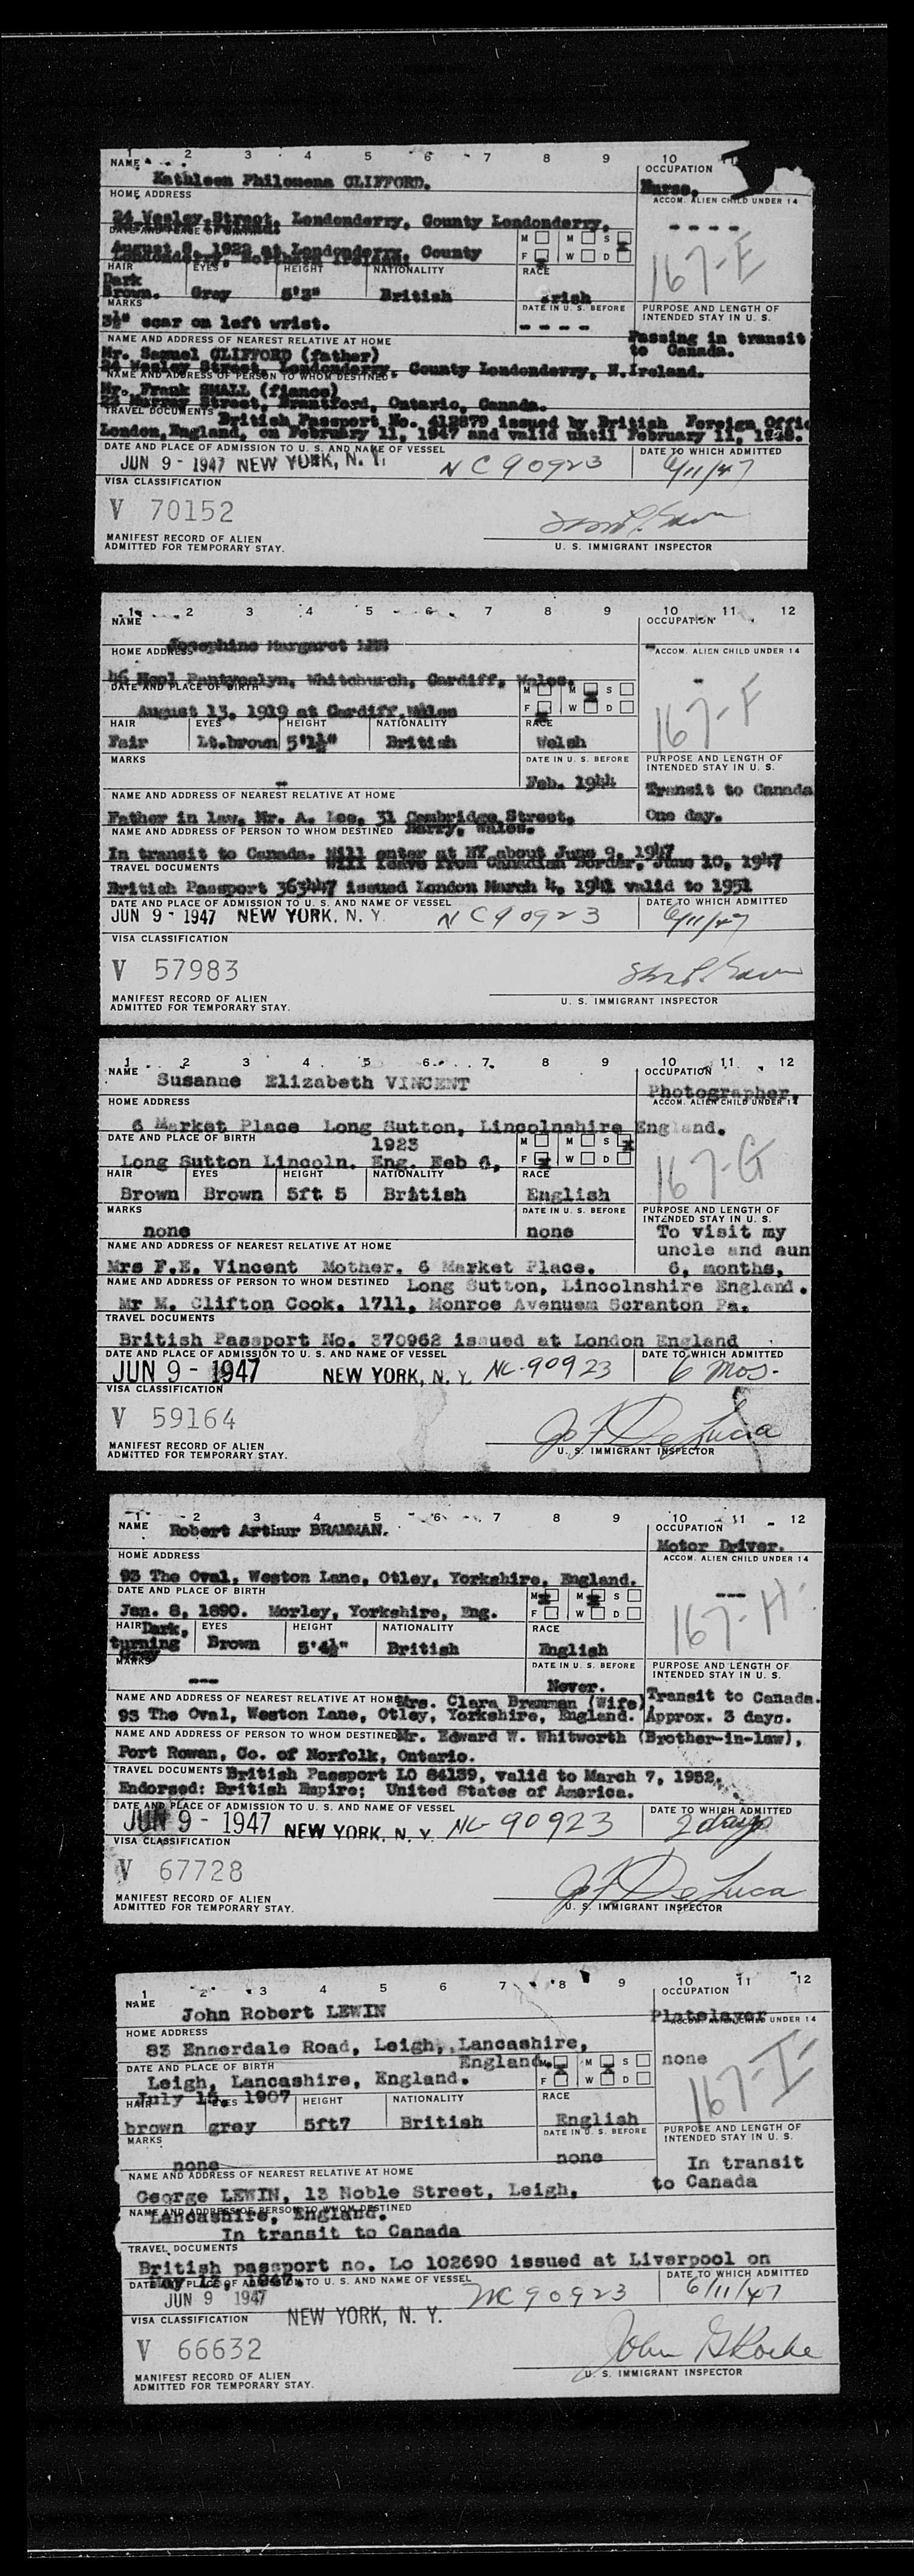 1 2 3 4 5 6 7 8 9 10 11
NAME OCCUPATION
Kathleen Philomena CLIFFORD. Nurse.
HOME ADDRESS ACCOM. ALIEN CHILD UNDER 14
24 Wesley Street, Londonderry, County Londonderry, ----
DATE AND PLACE OF BIRTH
August 8, 1922 at Londonderry, County M M S
Londonderry, Northern Ireland. F W D 167-E
HAIR EYES HEIGHT NATIONALITY RACE
Dark
Brown. Grey 5'3" British Irish
MARKS DATE IN U. S. BEFORE PURPOSE AND LENGTH OF
INTENDED STAY IN U. S.
3½" scar on left wrist. ----
NAME AND ADDRESS OF NEAREST RELATIVE AT HOME Passing in transit
Mr. Samuel CLIFFORD (father) to Canada.
24 Wesley Street, Londonderry, County Londonderry, N.Ireland.
NAME AND ADDRESS OF PERSON TO WHOM DESTINED
Mr. Frank SMALL (fiance)
23 Murray Street, Brantford, Ontario, Canada.
TRAVEL DOCUMENTS British Passport No. 412879 issued by British Foreign Offic
London, England, on February 11, 1947 and valid until February 11, 1948.
DATE AND PLACE OF ADMISSION TO U. S. AND NAME OF VESSEL DATE TO WHICH ADMITTED
JUN 9 - 1947 NEW YORK, N. Y. NC 90923 6/11/47
VISA CLASSIFICATION
V 70152
MANIFEST RECORD OF ALIEN
ADMITTED FOR TEMPORARY STAY. U. S. IMMIGRANT INSPECTOR
1 2 3 4 5 6 7 8 9 10 11 12
NAME OCCUPATION
Josephine Margaret LEE
HOME ADDRESS ACCOM. ALIEN CHILD UNDER 14
46 Heol Pantycelyn, Whitchurch, Cardiff, Wales. -
DATE AND PLACE OF BIRTH M M S
August 13, 1919 at Cardiff, Wales F W D 167-F
HAIR EYES HEIGHT NATIONALITY RACE
Fair Lt.brown 5'1½" British Welsh
MARKS DATE IN U. S. BEFORE PURPOSE AND LENGTH OF
INTENDED STAY IN U. S.
- Feb. 1944 Transit to Canada
NAME AND ADDRESS OF NEAREST RELATIVE AT HOME
Father in law, Mr. A. Lee, 31 Cambridge Street, One day.
NAME AND ADDRESS OF PERSON TO WHOM DESTINED Barry, Wales.
In transit to Canada. Will enter at NY about June 9, 1947
TRAVEL DOCUMENTS Will leave from Canadian Border, June 10, 1947
British Passport 363447 issued London March 4, 1941 valid to 1951
DATE AND PLACE OF ADMISSION TO U. S. AND NAME OF VESSEL DATE TO WHICH ADMITTED
JUN 9 - 1947 NEW YORK, N. Y. NC 90923 6/11/47
VISA CLASSIFICATION
V 57983
MANIFEST RECORD OF ALIEN
ADMITTED FOR TEMPORARY STAY. U. S. IMMIGRANT INSPECTOR
1 2 3 4 5 6 7 8 9 10 11 12
NAME OCCUPATION
Susanne Elizabeth VINCENT Photographer,
HOME ADDRESS ACCOM. ALIEN CHILD UNDER 14
6 Market Place Long Sutton, Lincolnshire England.
DATE AND PLACE OF BIRTH 1923 M M S
Long Sutton Lincoln. Eng. Feb 6, F W D 167-G
HAIR EYES HEIGHT NATIONALITY RACE
Brown Brown 5ft 5 British English
MARKS DATE IN U. S. BEFORE PURPOSE AND LENGTH OF
INTENDED STAY IN U. S.
none none To visit my
NAME AND ADDRESS OF NEAREST RELATIVE AT HOME uncle and aun
Mrs F.E. Vincent Mother. 6 Market Place. 6, months,
NAME AND ADDRESS OF PERSON TO WHOM DESTINED Long Sutton, Lincolnshire England.
Mr M. Clifton Cook. 1711, Monroe Avenuem Scranton Pa.
TRAVEL DOCUMENTS
British Passport No. 370962 issued at London England
DATE AND PLACE OF ADMISSION TO U. S. AND NAME OF VESSEL DATE TO WHICH ADMITTED
JUN 9 - 1947 NEW YORK, N. Y. NC-90923 6 mos.
VISA CLASSIFICATION
V 59164 Jo F De Lucia
MANIFEST RECORD OF ALIEN
ADMITTED FOR TEMPORARY STAY. U. S. IMMIGRANT INSPECTOR
1 2 3 4 5 6 7 8 9 10 11 12
NAME Robert Arthur BRAMMAN. OCCUPATION
Motor Driver.
HOME ADDRESS ACCOM. ALIEN CHILD UNDER 14
93 The Oval, Weston Lane, Otley, Yorkshire, England.
DATE AND PLACE OF BIRTH M M S ---
Jan. 8, 1890. Morley, Yorkshire, Eng. F W D 167-H
HAIR Dark, EYES HEIGHT NATIONALITY RACE
turning Brown 5'4½" British English
Grey
MARKS DATE IN U. S. BEFORE PURPOSE AND LENGTH OF
INTENDED STAY IN U. S.
--- Never.
NAME AND ADDRESS OF NEAREST RELATIVE AT HOME Mrs. Clara Bramman (Wife) Transit to Canada.
93 The Oval, Weston Lane, Otley, Yorkshire, England. Approx. 3 days.
NAME AND ADDRESS OF PERSON TO WHOM DESTINED Mr. Edward W. Whitworth (Brother-in-law),
Port Rowan, Co. of Norfolk, Ontario.
TRAVEL DOCUMENTS British Passport LO 84139, valid to March 7, 1952.
Endorsed: British Empire; United States of America.
DATE AND PLACE OF ADMISSION TO U. S. AND NAME OF VESSEL DATE TO WHICH ADMITTED
JUN 9 - 1947 NEW YORK, N. Y. NC-90923 2 days
VISA CLASSIFICATION
V 67728 Jo F De Luca
MANIFEST RECORD OF ALIEN
ADMITTED FOR TEMPORARY STAY. U. S. IMMIGRANT INSPECTOR
1 2 3 4 5 6 7 8 9 10 11 12
NAME OCCUPATION
John Robert LEWIN Platelayer
HOME ADDRESS ACCOM. ALIEN CHILD UNDER 14
83 Ennerdale Road, Leigh, Lancashire,
DATE AND PLACE OF BIRTH England. M M S none
Leigh, Lancashire, England. F W D 167-I
July 15, 1907
HAIR EYES HEIGHT NATIONALITY RACE
brown grey 5ft7 British English
MARKS DATE IN U. S. BEFORE PURPOSE AND LENGTH OF
INTENDED STAY IN U. S.
none none In transit
NAME AND ADDRESS OF NEAREST RELATIVE AT HOME to Canada
George LEWIN, 13 Noble Street, Leigh,
NAME AND ADDRESS OF PERSON TO WHOM DESTINED
Lancashire, England.
In transit to Canada
TRAVEL DOCUMENTS
British passport no. Lo 102690 issued at Liverpool on
May 1947.
DATE AND PLACE OF ADMISSION TO U. S. AND NAME OF VESSEL DATE TO WHICH ADMITTED
JUN 9 1947 NC 90923 6/11/47
VISA CLASSIFICATION NEW YORK, N. Y.
V 66632 John G Roche
MANIFEST RECORD OF ALIEN
ADMITTED FOR TEMPORARY STAY. U. S. IMMIGRANT INSPECTOR